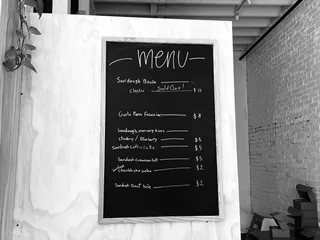 menu
Sourdough Boule
Classic Sold Out! $12
$8
Sourdough morning buns
/ Blueberry $5
Sourdough Coffee Cake $5
Sourdough Cinnamon Roll $5
Chocolate chip cookie $2
Sourdough Donut hole $2